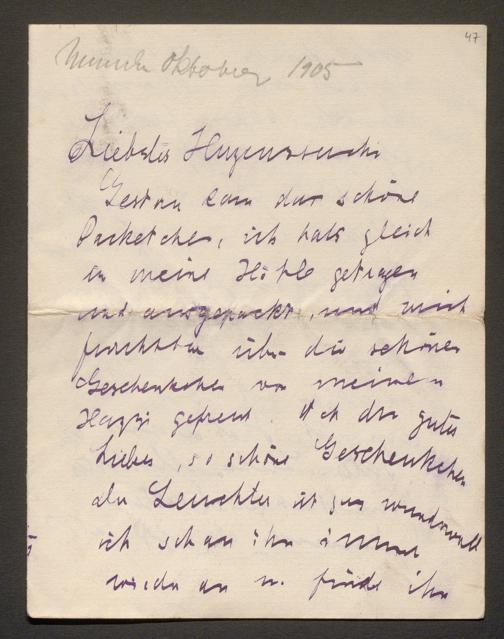 47
Oktober 1905
Liebstes
Gestern kam das schöne
Packetchen, ich habs gleich
in meine Höhle getragen
und ausgepackt, und mich
über die schönen
Geschenkchen von meinem
gefreut. Ach du gutes
Liebes, so schöne Geschenkchen
der Leuchter ist ganz wundervoll
ich schau ihn immer
wieder an u. finde ihn